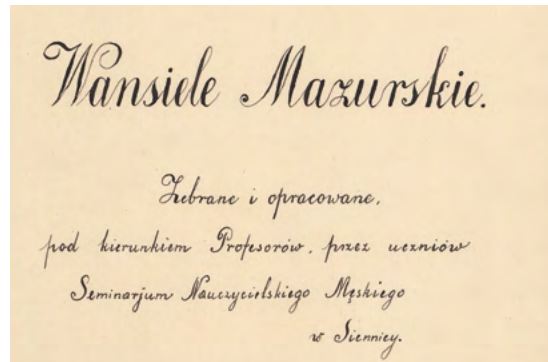 Wansiele Mazurskie.
Zebrane i opracowane,
pod kierunkiem Profesorów, przez uczniów
Seminarjum Nauczycielskiego Męskiego
w Siennicy.